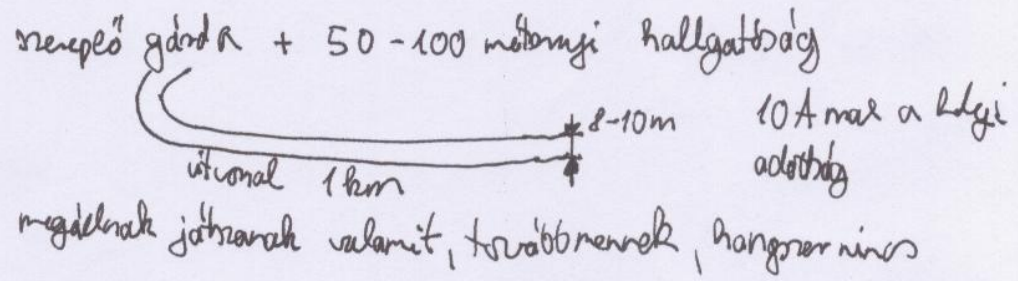 szereplő gárda + 50-100 méternyi hallgatóság
8-10m
10A max a helyi
adottság
útvonal 1km
megállnak játszanak valamit, továbbmennek, hangszer nincs